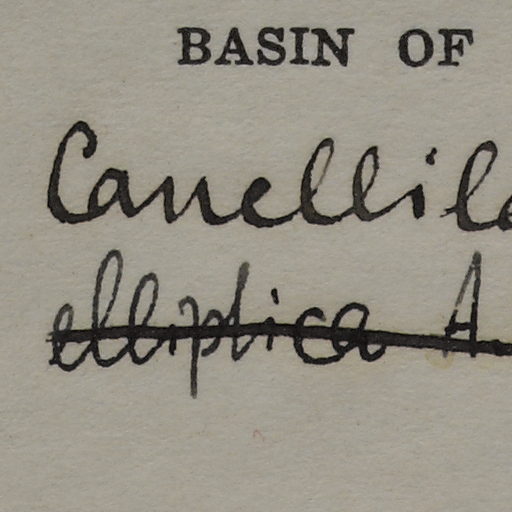 BASIN OF
Canellila
elliptica A.